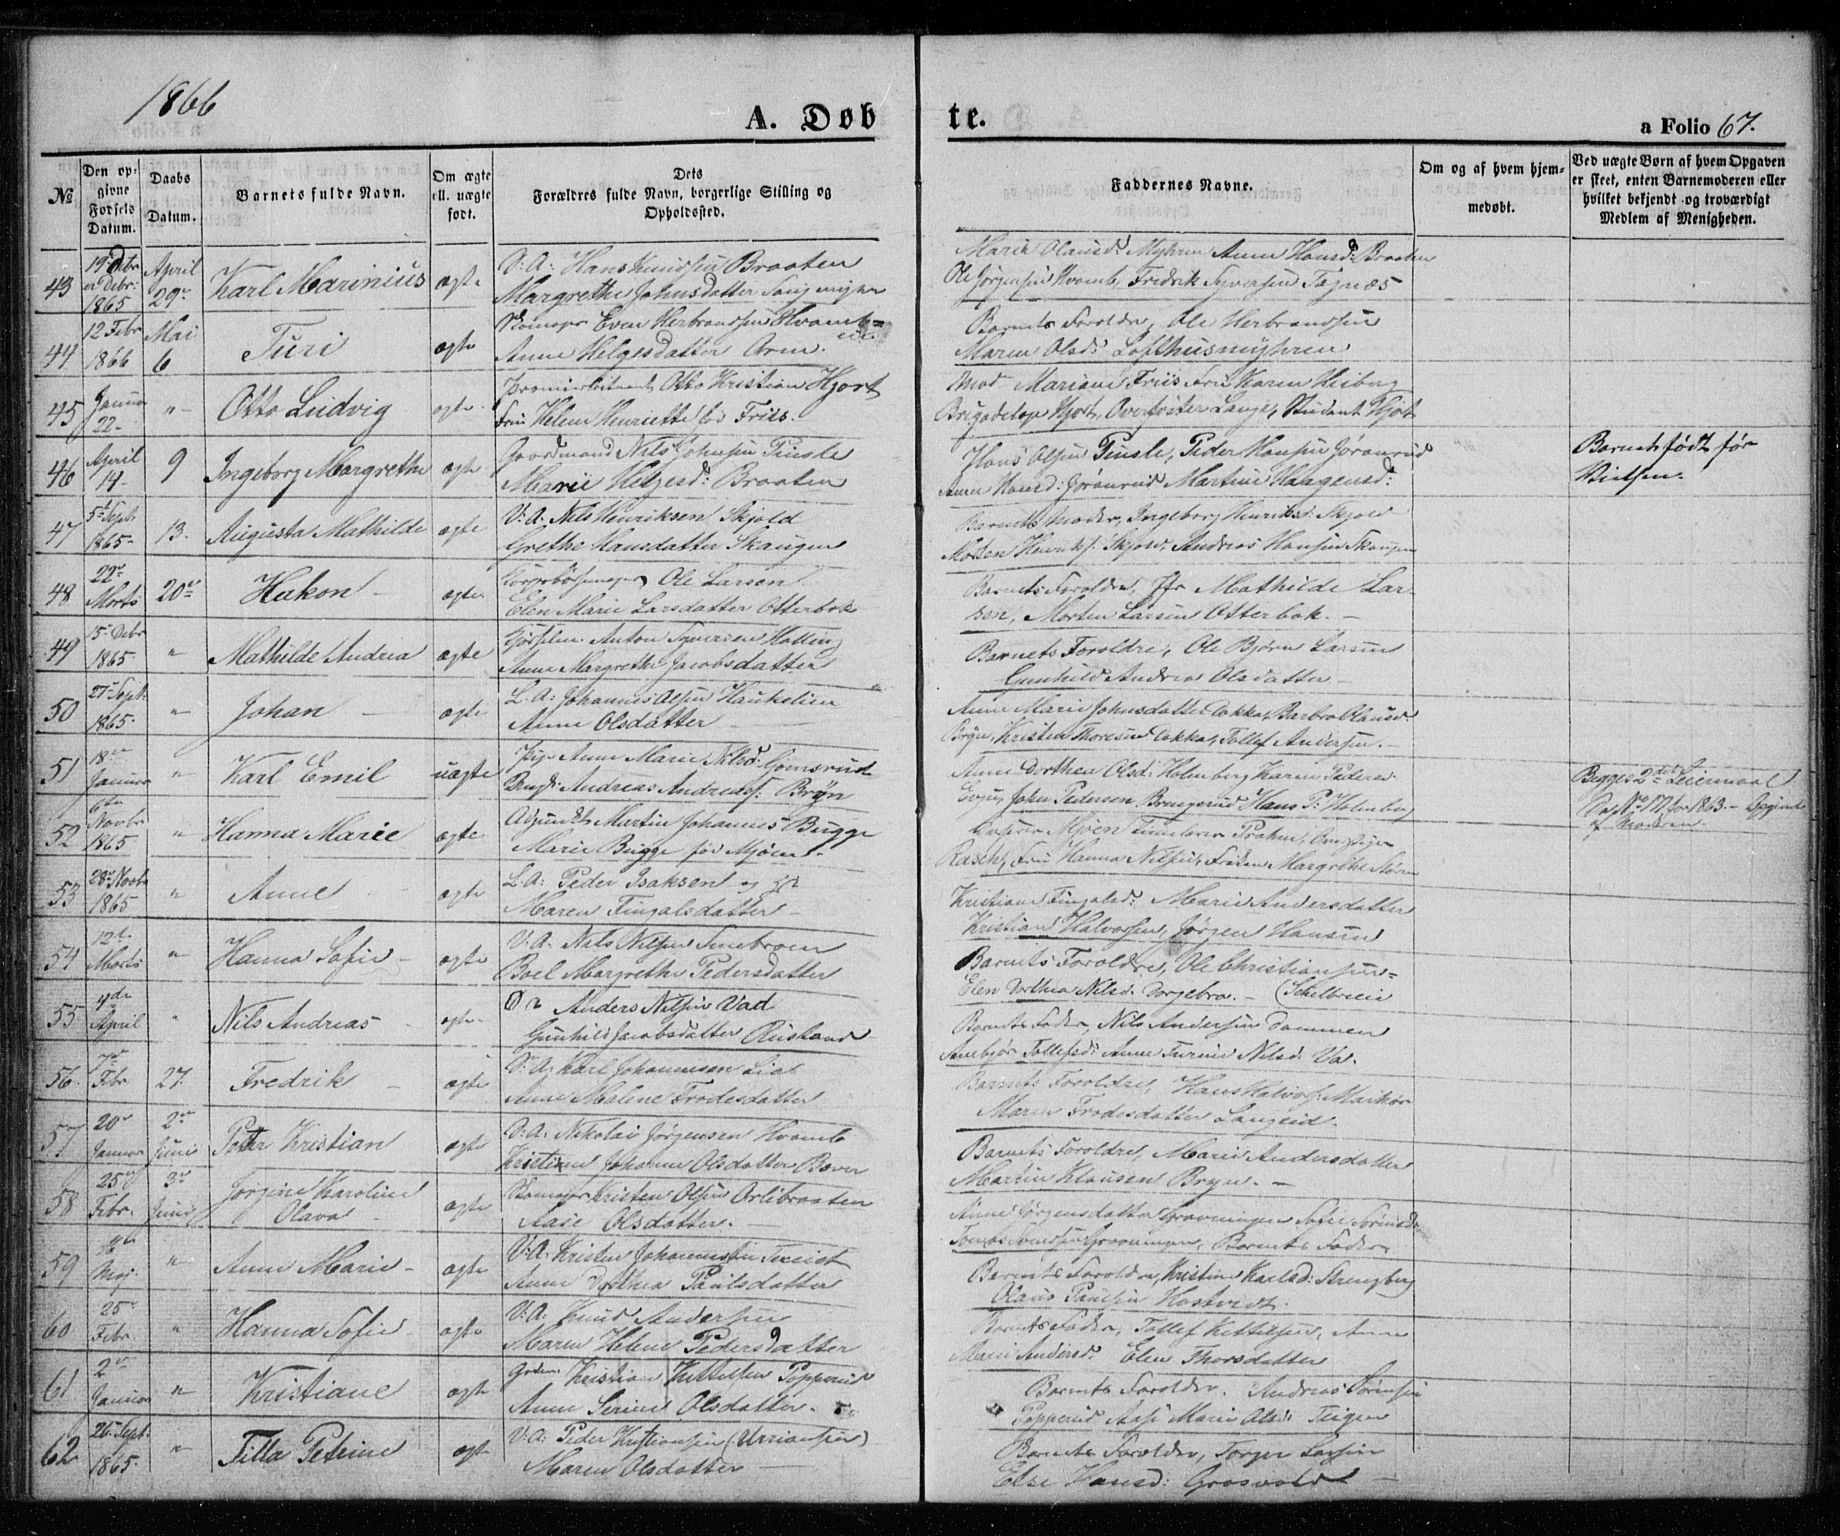 1866
A. Døbte.
a Folio 67.
№
Den opgivne Førsels Datum.
Daabs Datum.
Barnets fulde Navn.
Om ægte ell. uægte født.
Dets Forældres fulde Navn, borgerlige Stilling og Opholdssted.
Faddernes Navne.
Om og af hvem hjemmedøbt.
Ved uægte Børn af hvem Opgaven er skeet, enten Barnemoderen eller hvilket bekjendt og troværdigt Medlem af Menigheden.
43 1865 April 29 Karl Marinius ægte V: A: Hans Knudsen Braaten
Margrethe Johnsdatter
Marie Olausd: Myhren Anne Hansd: Braaten
Ole Jørgensen Hvamb, Fredrik Syversen
44 12 Febr 1866 Mai 6 Turi ægte Even Herbrandsen
Anne Helgesdatter
Barnets Foroldre, Ole Herbrandsen
Maren Olsd: Lofthusmyhren
45 Januar 22 " Otto Ludvig ægte Otto Kristian Hjort
Fru Helene Henriette fød Friis.
Mad Mariane Friis Fru Karen Heiberg
Hjort, Lange, Student Hjort
46 April 14 9 Ingeborg Margrethe ægte Gaardmand Nils Johnsen Tinsle
Marie Helgesd: Braaten
Hans Olsen Tinsle, Peder Hansen Jøranrud
Anne Hansd: Jøranrud Martine Haagensd:
Barnet født før
Vielsen.
47 5t Sept: 1865 13. Augusta Mathilde ægte V: A: Nils Henriksen Skjold
Grethe Hansdatter Skaugen
Barnets Moder, Ingeborg Henriksd: Skjold
Morten Henriks: Skjold, Andreas Hansen Skaugen
48 22 Marts 20 Hakon ægte Ole Larsen
Elen Marie Larsdatter Otterbek
Barnets Foroldre, Jfr Mathilde Larsen, Morten Larsen Otterbek.
49 15 Debr 1865 " Mathilde Andrea ægte Anton Syversen
Anne Margrethe Jacobsdatter
Barnets Foroldre, Ole Bjørn Larsen
Gunhild Andrea Olsdatter
50 27 Sept: 1865 " Johan ægte L. A: Johannes Olsen Haukelien
Anne Olsdatter
Anne Marie Johnsdatter Barbro Olausd
Bryn, Kristen Thoresen Tollef Andersen.
51 18 Januar " Karl Emil uægte Pige Anne Marie Nilsd: Gomsrud
Andreas Andreass: Bryn
Anne Dorthea Olsd: Holmberg Karen Pedersd
John Pedersen Hans P: Holmberg
Begges 2det Leiermaal
af Moderen
52 6te Novbr 1865 " Hanna Marie ægte Adjunct Martin Johannes Bugge
Marie Bugge fød Mjøen.
Rasch, Fru Hanna Nilsen, Margrethe
53 28 Novbr 1865 " Anne ægte L. A: Peder Isaksen
Maren Fingalsdatter
Kristiane Fingalsd: Marie Andersdatter
Kristian Halvorsen, Jørgen Hansen
54 12t Marts " Hanna Sofie ægte V. A. Nils Nilsen
Boel Margrethe Pedersdatter
Barnets Foroldre, Ole Christiansen
Elen Dorthea Nilsd:
55 4de April " Nils Andreas ægte Anders Nilsen Vad
Gunhild Jacobsdatter Rustand
Barnets Fader, Nils Andersen Dammen
Tollefsd: Anne Turine Nilsd: Va.
56. 7 Febr 27. Fredrik ægte V: A: Karl Johannesen Lia
Anne Malene Frodesdatter
Barnets Foroldre, Hans Halvors:
Maren Frodesdatter Langeid.
57 20 Januar 2 Juni Peter Kristian ægte V: A: Nikolai Jørgensen Hvamb
Johanne Olsdatter Bæver
Barnets Foroldre, Marie Andersdatter
Martin Klausen Bryn.
58 25 Febr. 3 Juni Jørgine Karoline Olava ægte Kristen Olsen Orlibraaten
Aase Olsdatter.
Anne Jørgensdatter Gravningen Sofie
Gravningen, Barnets Fader
59 Maj " Anne Marie ægte V: A: Kristen Johannesen
Anne Dorthea Paulsdatter
Barnets Foroldre, Kristine Karlsd: Strengberg
Olaus Paulsen Hostvedt.
60 25 Febr " Hanna Sofie ægte V: A: Knud Andersen
Maren Helene Pedersdatter
Barnets Fader, Tollef Kittilsen, Anne
Marie Andersd: Elen Thorsdatter
61 2 Januar " Kristiane ægte Kristian Kittelsen Popperud
Anne Serine Olsdatter.
Barnets Foroldre, Andreas Sørensen
Popperud Aase Marie Olsd: Teigen
62 26 Sept: 1865. " Tilla Petrine ægte V: A: Peder Kristiansen (Urriansen)
Maren Olsdatter
Barnets Foroldre, Torger Larsen
Else Hansd: Grosvold